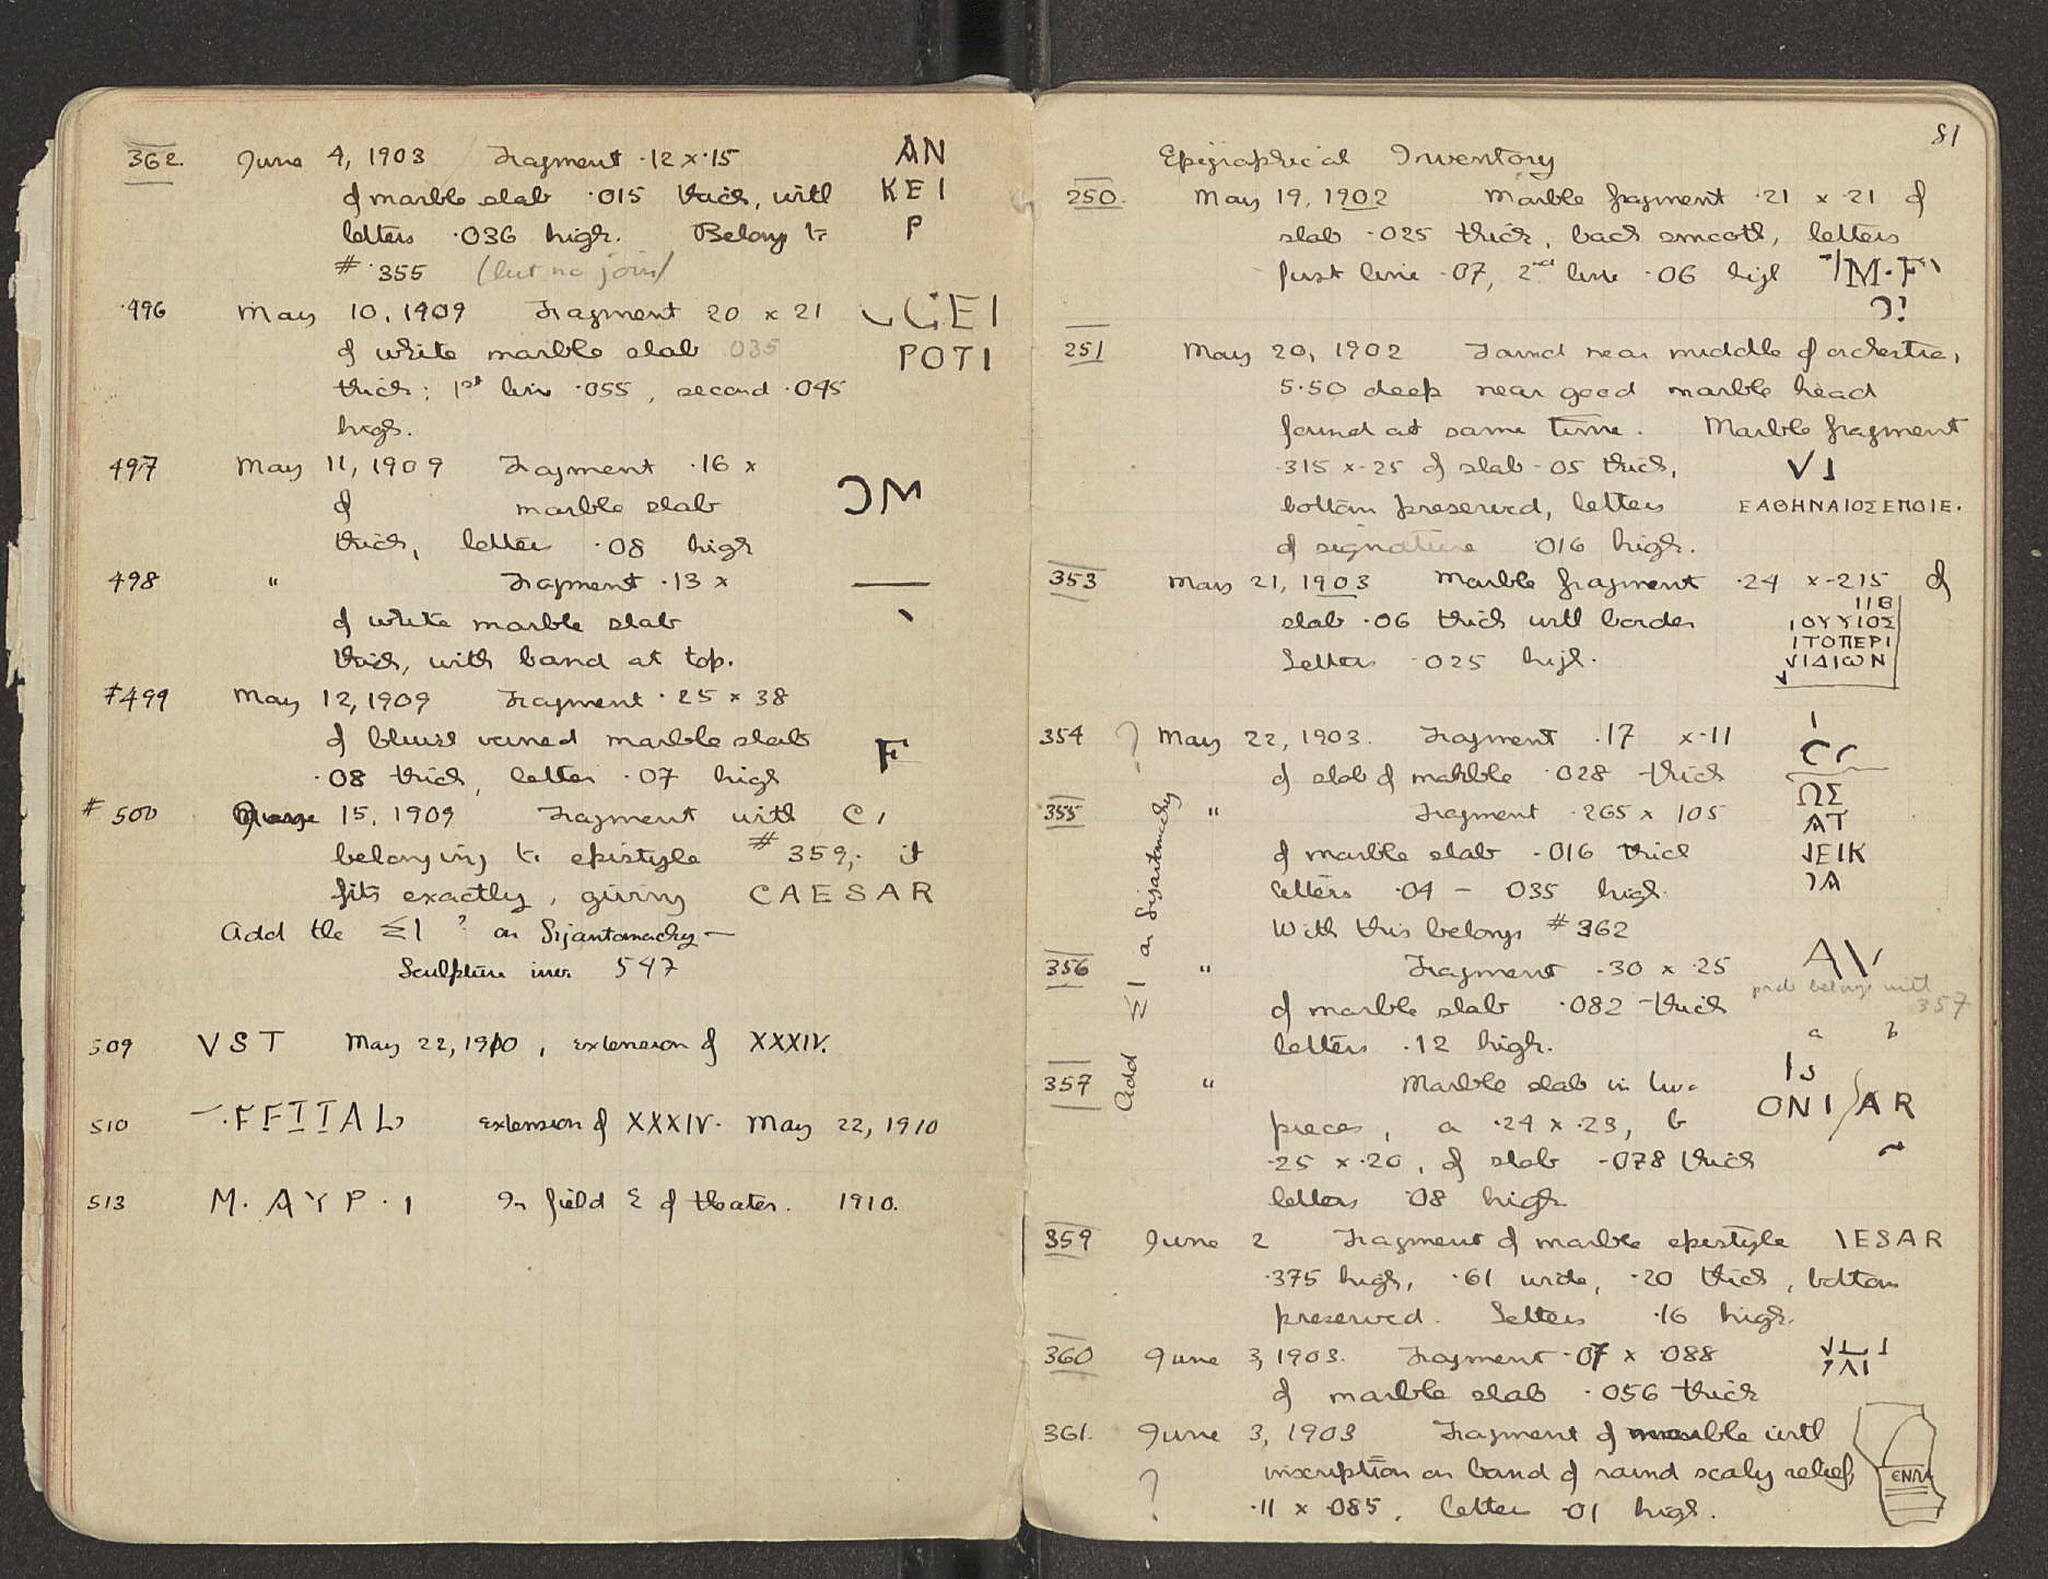 362. June 4, 1903 Fragment .12 x .15 AN
of marble slab .015 thick, with KEI
letters .036 high. Belongs to P
# 355 (but no join)
496 May 10, 1909 Fragment 20 x 21 GEI
of white marble slab 035 POTI
thick; 1st line .055, second .045
high.
497 May 11, 1909 Fragment .16 x
of marble slab ƆM
thick, letters .08 high
498 " Fragment .13 x
of white marble slab
thick, with band at top.
#499 May 12, 1909 Fragment .25 x 38
of bluish veined marble slab F
.08 thick, letter .07 high
# 500 June 15, 1909 Fragment with C
belonging to epistyle # 359; it
fits exactly, giving CAESAR
Add the ΣI ? on Gigantomachy —
Sculpture inv. 547
509 VST May 22, 1910, extension of XXXIV.
510 .FFITAL extension of XXXIV. May 22, 1910
513 M. AYP. I In field E of theater. 1910.
81
Epigraphical Inventory
250. May 19, 1902 Marble fragment .21 x .21 of
slab .025 thick, back smooth, letters
first line .07, 2nd line .06 high M.F
251 May 20, 1902 Found near middle of orchestra,
5.50 deep near good marble head
found at same time. Marble fragment
.315 x .25 of slab .05 thick,
bottom preserved, letters ΕΑΘΗΝΑΙΟΣΕΠΟΙΕ.
of signature .016 high.
353 May 21, 1903 Marble fragment .24 x .215 of
IIB
slab .06 thick with border ΙΟΥΥΙΟΣ
ΙΤΟΠΕΡΙ
Letters .025 high. ΙΔΙωΝ
354 ? May 22, 1903. Fragment .17 x .11
of slab of marble .028 thick
355 " Fragment .265 x 105 ΩΣ
ΑΤ
of marble slab .016 thick ΕΙΚ
letters .04 – 035 high. Α
With this belongs # 362
Add ΣI on Gigantomachy
356 " Fragment .30 x .25 AV
prob belongs with 357
of marble slab .082 thick
letters .12 high. a b
357 " Marble slab in two IS
pieces, a .24 x .23, b ONI/AR
.25 x .20, of slab .078 thick
letters .08 high
359 June 2 Fragment of marble epistyle \ESAR
.375 high, .61 wide, .20 thick, bottom
preserved. Letters .16 high.
360 June 3, 1903. Fragment .07 x .088
of marble slab .056 thick
361. June 3, 1903 Fragment of marble with
? inscription on band of round scaly relief,
.11 x .085, letter .01 high. ЄΝ